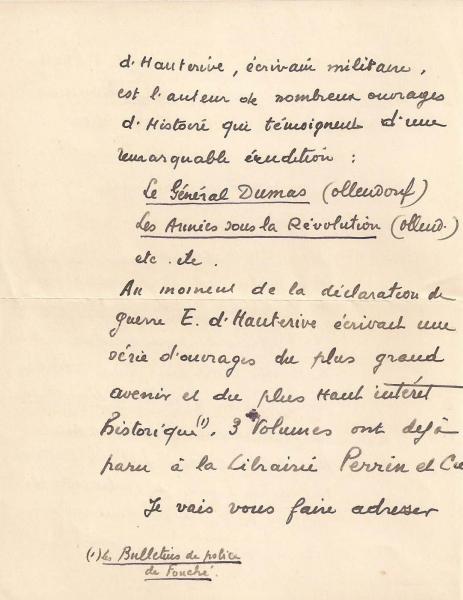 d'Hauterive, écrivain militaire,
est l'auteur de nombreux ouvrages
d'Histoire qui témoignent d'une
remarquable érudition :
Le Général Dumas (ollendorf)
Les Années sous la Révolution (ollend.)
etc. etc.
Au moment de la déclaration de
guerre E. d'Hauterive écrivait une
série d'ouvrages du plus grand
avenir et du plus Haut intérêt
Historique (1). 3 Volumes ont dejà
paru à la Librairie Perrin et Cie
Je vais vous faire adresser
(1) Les Bulletins de police
de Fouché.